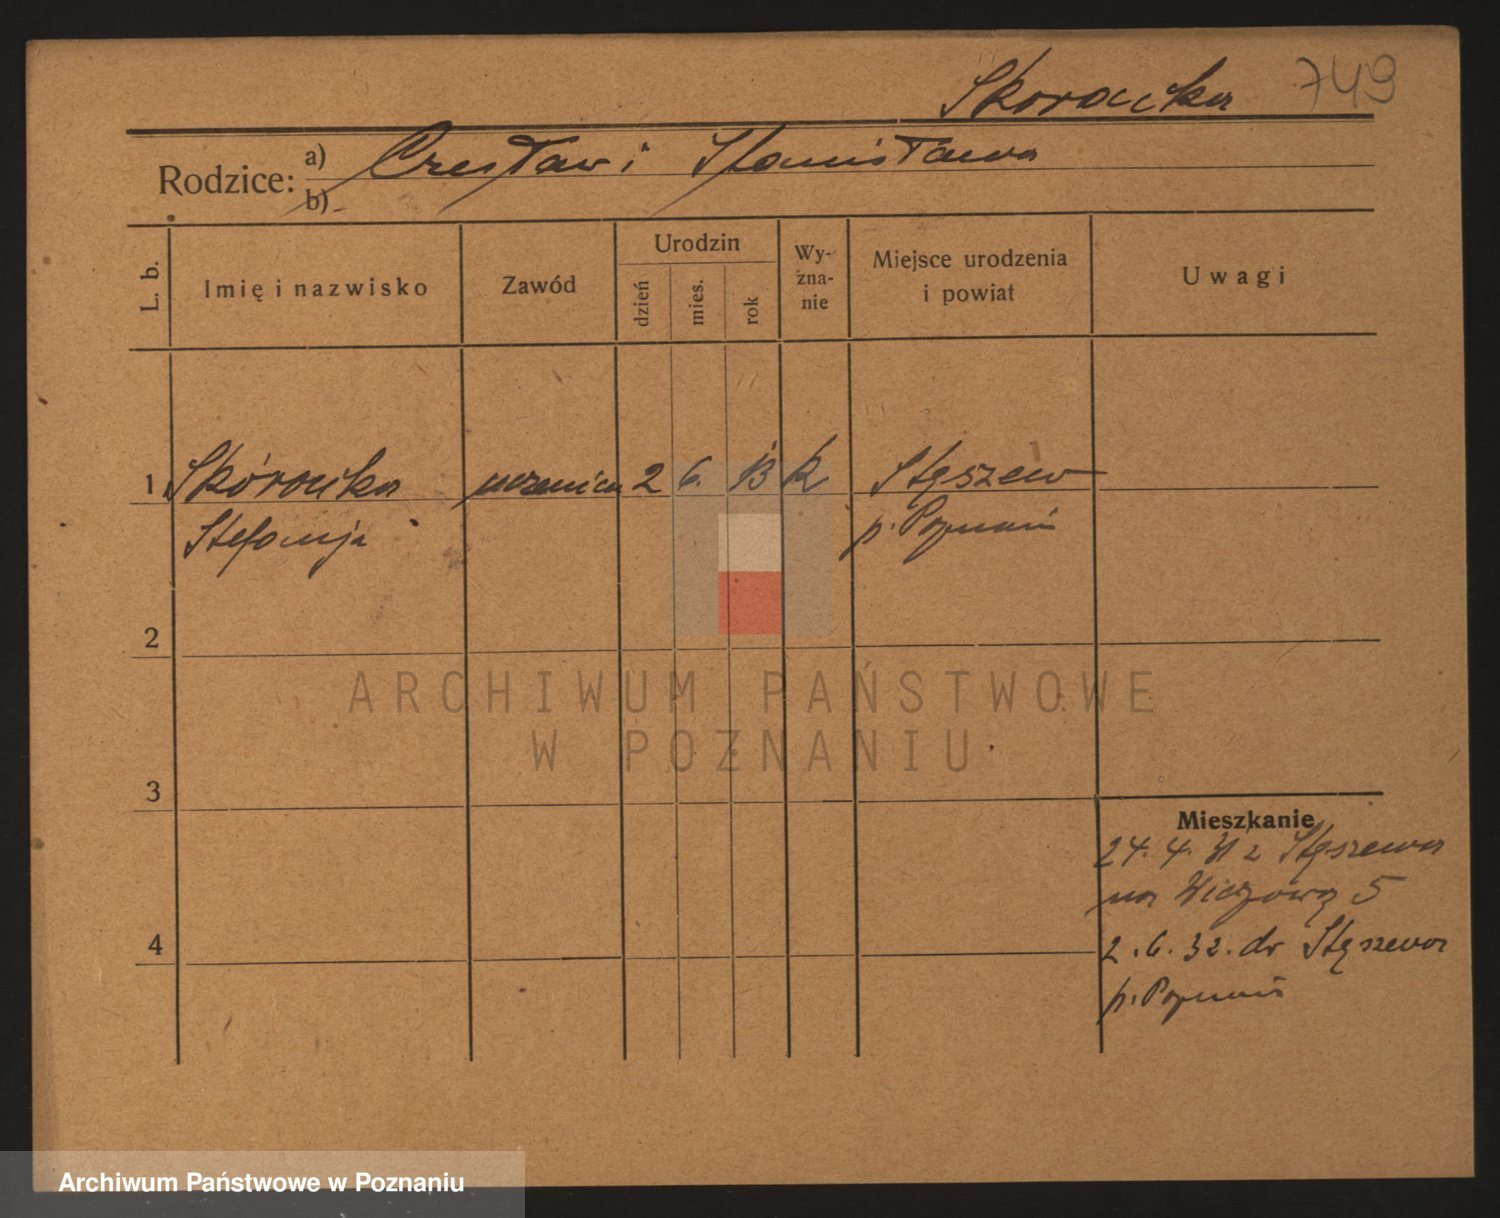 Skórańka 749
Rodzice: a) Czesław i Stanisława
b)
L. b.
Imię i nazwisko
Zawód
Urodzin
dzień
mies.
rok
Wy-
zna-
nie
Miejsce urodzenia
i powiat
Uwagi
1 Skórańka uczenica 2 6. 13 k Stęszew
Stefanja p. Poznań
2
3
4
Mieszkanie
24. 4. 31 z Stęszewa
na 5
2. 6. 32. do Stęszewa
p. Poznań
ARCHIWUM PAŃSTWOWE
W POZNANIU
Archiwum Państwowe w Poznaniu